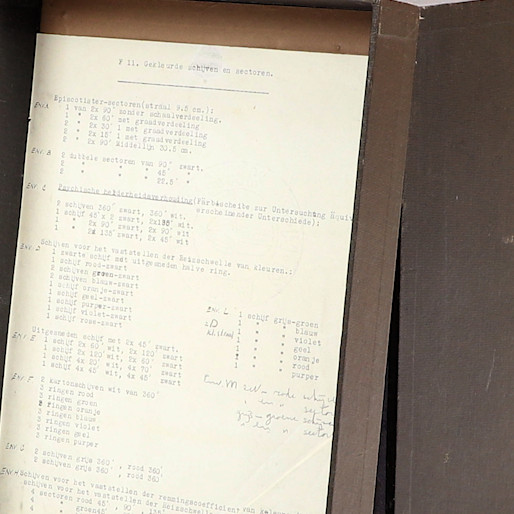 F 11. Gekleurde schijven en sectoren.
Env. A
Episcotister-sectoren(straal 9.5 cm.):
1 van 2x 90° zonder schaalverdeling.
1 " 2x 60° met graadverdeling
2 " 2x 30° 1 met graadverdeling
2 " 2x 15° 1 met graadverdeling
2 " 2x 90° Middellijn 30,5 cm.
Env. B
2 dubbele sectoren van 90° zwart.
2 " " " 45° "
2 " " " 22.5° "
Env. C
Psychische helderheidsverhouding(Farbscheibe zur Untersuchung Equit
erscheinender Unterschiede);
2 schijven 360° zwart, 360° wit.
1 schijf 45°x 2 zwart, 2x135° wit.
1 " 2x 90° zwart, 2x 90° wit
1 " 2x 135° zwart, 2x 45° wit
Env. D
Schijven voor het vaststellen der Reizschwelle van kleuren.:
1 zwarte schijf met uitgesneden halve ring.
1 schijf rood-zwart
2 schijven groen-zwart
1 schijven blauw-zwart
1 schijf oranje-zwart
1 schijf geel-zwart
1 schijf purper-zwart
1 schijf violet-zwart
1 schijf rose-zwart
Env. L
1 schijf grijs-groen
1 " " blauw
1 " " violet
1 " " geel
1 " " oranje
1 " " rood
1 " " purper
Env. E
Uitgesneden schijf met 2x 45° zwart.
1 schijf 2x 60° wit, 2x 120° zwart
1 schijf 2x 120° wit, 2x 60° zwart
1 schijf 4x 20° wit, 4x 70° zwart
1 schijf 4x 45° wit, 4x 45° zwart
Env. M
rode
sector
grijs-groene
sector
Env. F
2 kartonschijven wit van 360°
3 ringen rood
2 ringen groen
2 ringen oranje
3 ringen blauw
2 ringen violet
2 ringen geel
2 ringen purper
Env. G
2 schijven grijs 360°, rood 360°
2 schijven grijs 360°, rood 360°
Env. H
Schijven voor het vaststellen der remmingscoefficient van
schijven voor het vaststellen der Reizschwelle
4 sectoren rood 45°, 90°
4 " groen 45°